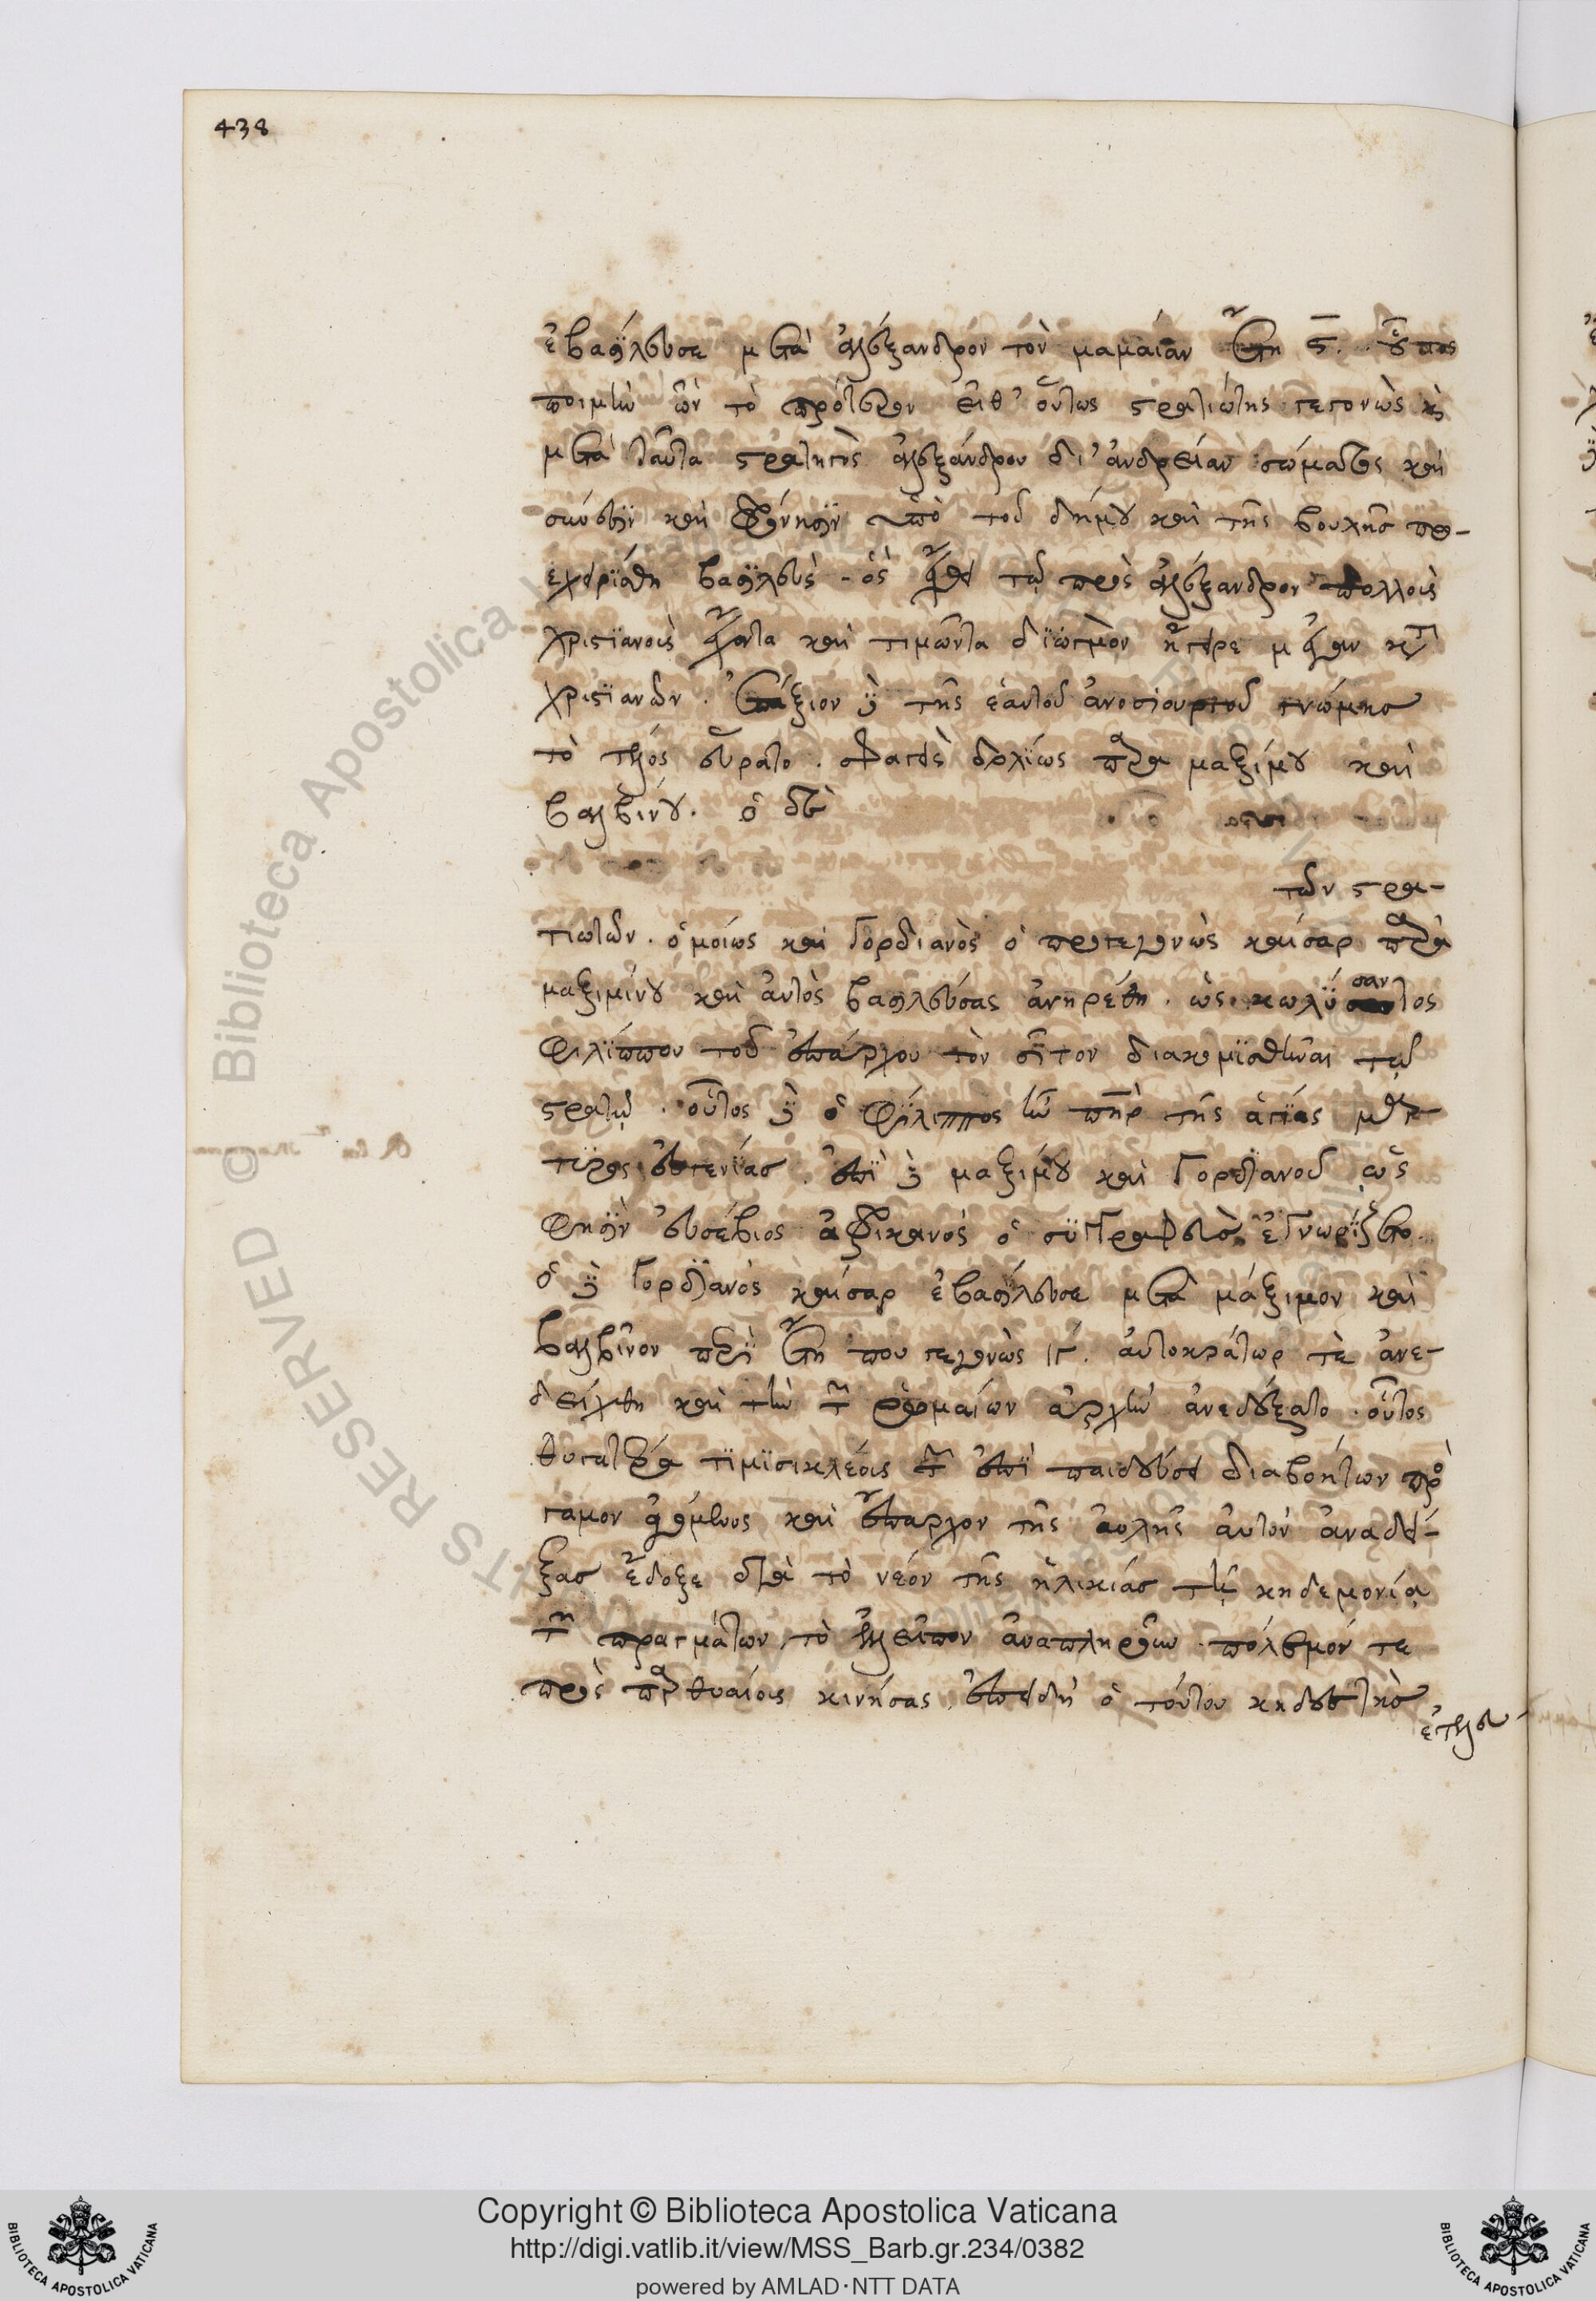 438
ἐβασίλευσε μετὰ ἀλέξανδρον τὸν μαμαίαν ἔτη ς̅. οὗτος
ποιμὴν ὢν τὸ πρότερον εἶθ' οὕτως στρατιώτης γεγονὼς κὶ
μετὰ ταῦτα στρατηγὸς ἀλεξάνδρου δι' ἀνδρείαν σώματος καὶ
σύνεσιν καὶ φρόνησιν ὑπὸ τοῦ δήμου καὶ τῆς βουλῆς προ-
εχειρίσθη βασιλεύς. ὃς ὀργῇ τῇ πρὸς ἀλέξανδρον πολλοὺς
χριστιανοὺς ἔχοντα καὶ τιμῶντα διωγμὸν ἤγειρε μέγαν κατὰ
χριστιανῶν. ἐπάξιον δὲ τῆς ἑαυτοῦ ἀνοσιουργοῦ γνώμης
τὸ τέλος εὕρατο. σφαγεὶς δολίως παρὰ μαξίμου καὶ
βαλβίνου. ὁ δὲ
τῶν στρα-
τιωτῶν. ὁμοίως καὶ Γορδιανὸς ὁ προγεγονὼς καίσαρ παρὰ
μαξιμίνου καὶ αὐτὸς βασιλεύσας ἀνῃρέθη. ὡς κωλύσαντος
Φιλίππου τοῦ ἐπάρχου τὸν σῖτον διακομισθῆναι τῷ
στρατῷ. οὗτος δὲ ὁ Φίλιππος ἦν πατὴρ τῆς ἁγίας μάρ-
τυρος εὐγενίας. ἐπὶ δὲ μαξίμου καὶ Γορδιανοῦ ὥς
φησιν εὐσέβιος ἀφρικανὸς ὁ συγγραφεὺς ἐγνωρίζετο.
ὁ δὲ Γορδιανὸς καίσαρ ἐβασίλευσε μετὰ μάξιμον καὶ
βαλβῖνον περὶ ἔτη που γεγονὼς ιγ. αὐτοκράτωρ τὲ ἀνε-
δείχθη καὶ τὴν τῶν ῥωμαίων ἀρχὴν ἀνεδέξατο. οὗτος
θυγατέρα τιμισικλέους τῶν ἐπὶ παιδεύσει διαβοήτων πρὸς
γάμον ἀγόμενος καὶ ἔπαρχον τῆς αὐλῆς αὐτὸν ἀναδεί-
ξας ἔδοξε διὰ τὸ νέον τῆς ἡλικίας τῇ κηδεμονίᾳ
τῶν πραγμάτων τὸ ἐλλεῖπον ἀναπληροῦν. πόλεμόν τε
πρὸς παρθυαίους κινήσας, ἐπειδὴ ὁ τούτου κηδεστὴς
ἐτελεύ-
Copyright © Biblioteca Apostolica Vaticana
http://digi.vatlib.it/view/MSS_Barb.gr.234/0382
powered by AMLAD·NTT DATA